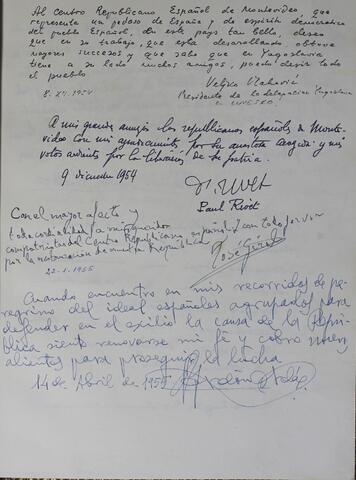 Al Centro Republicano Español de Montevideo, que
representa un pedaso de España y de espiritu democratico
del pueblo Español, en este pays tan bello, deseo
que en su trabajo, que esta desarrollando obtuve
mayores sucesos y que sabe que en Jugoslavia
tiene a su lado muchos amigos, puedo desir todo
el pueblo
8. XII. 1954
Veljko Vlahović
Presidente de la delegacion Jugoslava
en UNESKO!
A mis grandes amigos los republicanos españoles de Monte-
video con mi agradecimiento, por su acogida y mis
votos por la liberación de su patria.
9 diciembre 1954
P. Rivet
Paul Rivet
Con el mayor afecto y
toda cordialidad a mis queridos
compatriotas del Centro Republicano español y con todo fervor
por la restauracion de nuestra República
José Giral
22-1-1955
Cuando encuentro en mis recorridos de pe-
regrino del ideal españoles agrupados para
defender en el exilio la causa de la Repú-
blica siento renovarse mi fé y cobro nuevos
alientos para proseguir la lucha
14 de Abril de 1955